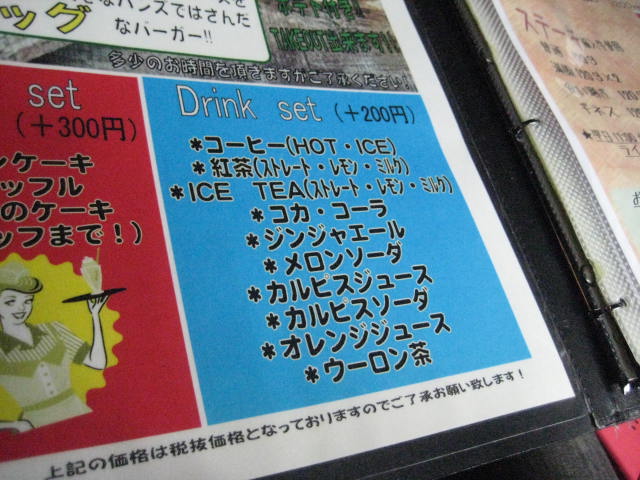 なバンズではさんだ
なバーガー!!
TAKEOUT出来ます!!
多少のお時間を頂きますがご了承ください!
set
(+300円)
ンケーキ
ッフル
のケーキ
ッフまで!)
Drink set (+200円)
*コーヒー(HOT・ICE)
*紅茶(ストレート・レモン・ミルク)
*ICE TEA(ストレート・レモン・ミルク)
*コカ・コーラ
*ジンジャエール
*メロンソーダ
*カルピスジュース
*カルピスソーダ
*オレンジジュース
*ウーロン茶
上記の価格は税抜価格となっておりますのでご了承お願い致します!
ステーキ